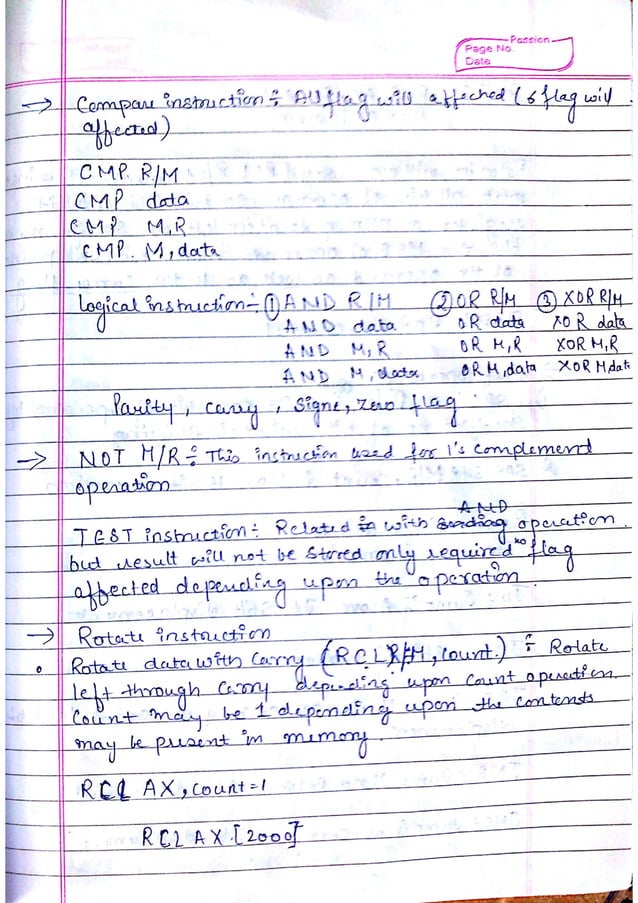 Passion
Page No.
Date
→ Compare instruction ÷ All flag will affected (6 flag will
affected)
CMP. R/M
CMP data
CMP M,R
CMP. M, data
Logical instruction- ① AND R/M ② OR R/M ③ XOR R/M
AND data OR data XOR data
AND M, R OR M, R XOR M, R
AND M, data OR M, data XOR M data
Parity, Carry, Signe, Zero flag
→ NOT M/R ÷ This instruction used for 1's complement
operation
AND
TEST instruction ÷ Related with operation.
but result will not be stored only required no flag
affected depending upon the operation.
→ Rotate instruction
• Rotate data with carry (RCL R/M, count.) ÷ Rotate
left through carry depending upon count operation.
Count may be 1 depending upon the contents
may be present in memory.
RCL AX, count=1
RCL AX.[2000]